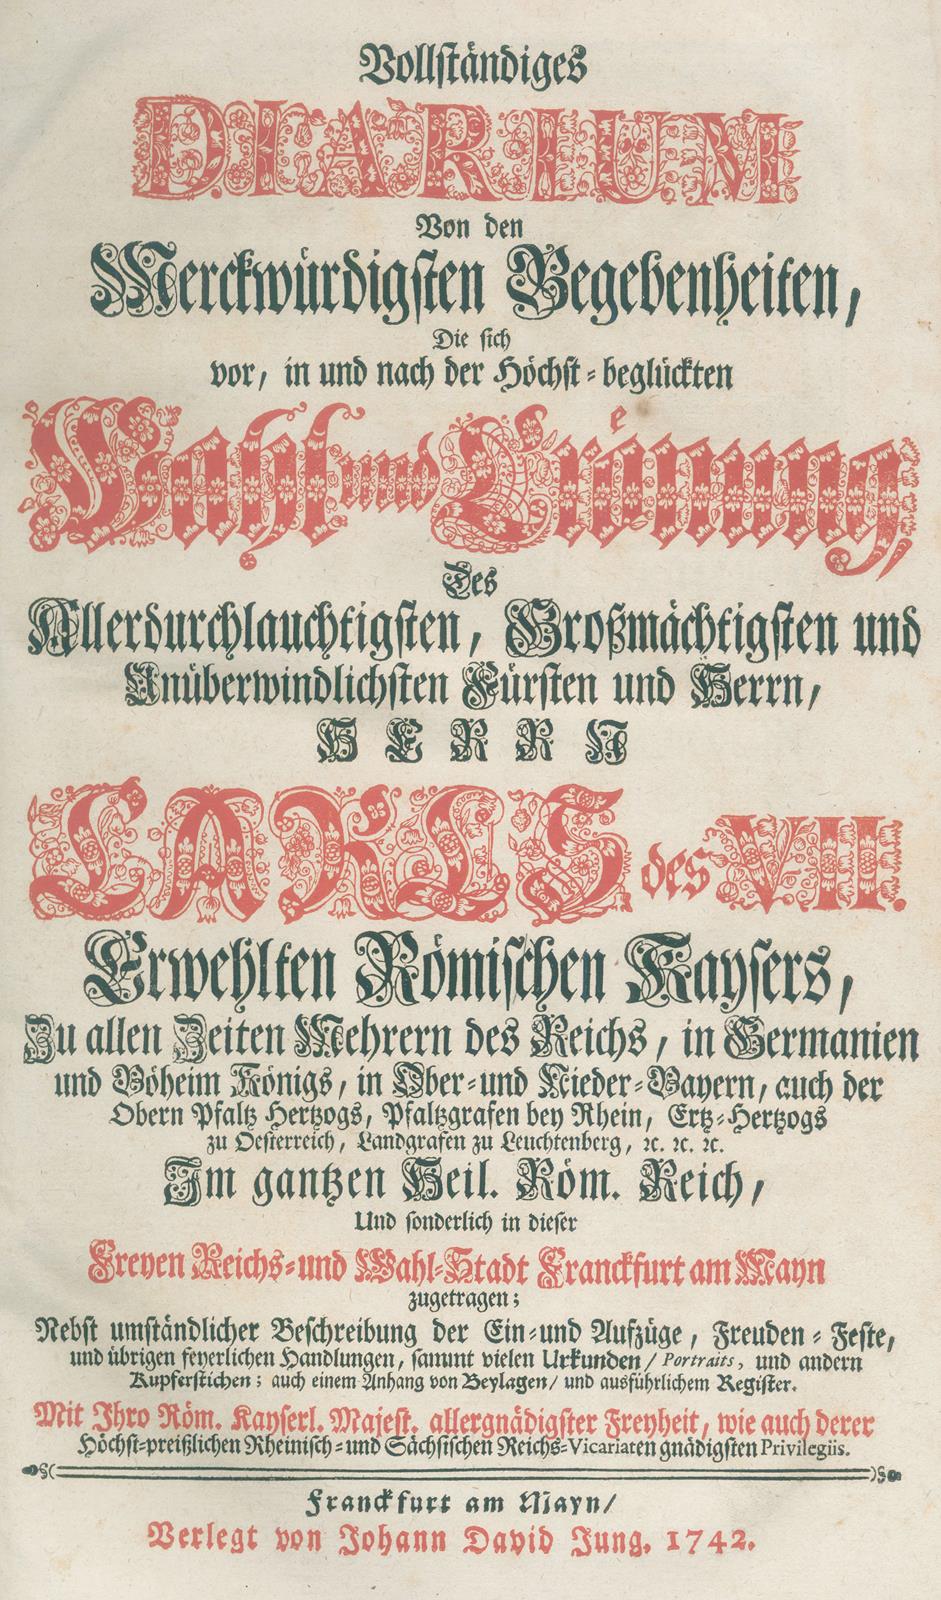 Vollständiges
DIARIUM
Von den
Merckwürdigsten Begebenheiten,
Die sich
vor, in und nach der Höchst-beglückten
Wahl und Crönung
Des
Allerdurchlauchtigsten, Großmächtigsten und
Unüberwindlichsten Fürsten und Herrn,
HERRN
CARLS des VII.
Erwehlten Römischen Kaysers,
Zu allen Zeiten Mehrern des Reichs, in Germanien
und Böheim Königs, in Ober-und Nieder-Bayern, auch der
Obern Pfaltz Hertzogs, Pfaltzgrafen bey Rhein, Ertz-Hertzogs
zu Oesterreich, Landgrafen zu Leuchtenberg, ꝛc. ꝛc. ꝛc.
Im gantzen Heil. Röm. Reich,
Und sonderlich in dieser
Freyen Reichs-und Wahl-Stadt Franckfurt am Mayn
zugetragen;
Nebst umständlicher Beschreibung der Ein-und Aufzüge, Freuden-Feste,
und übrigen feyerlichen Handlungen, sammt vielen Urkunden/ Portraits, und andern
Kupferstichen; auch einem Anhang von Beylagen/ und ausführlichem Register.
Mit Ihro Röm. Kayserl. Majest. allergnädigster Freyheit, wie auch derer
Höchst-preißlichen Rheinisch-und Sächsischen Reichs-Vicariaten gnädigsten Privilegiis.
Franckfurt am Mayn/
Verlegt von Johann David Jung. 1742.